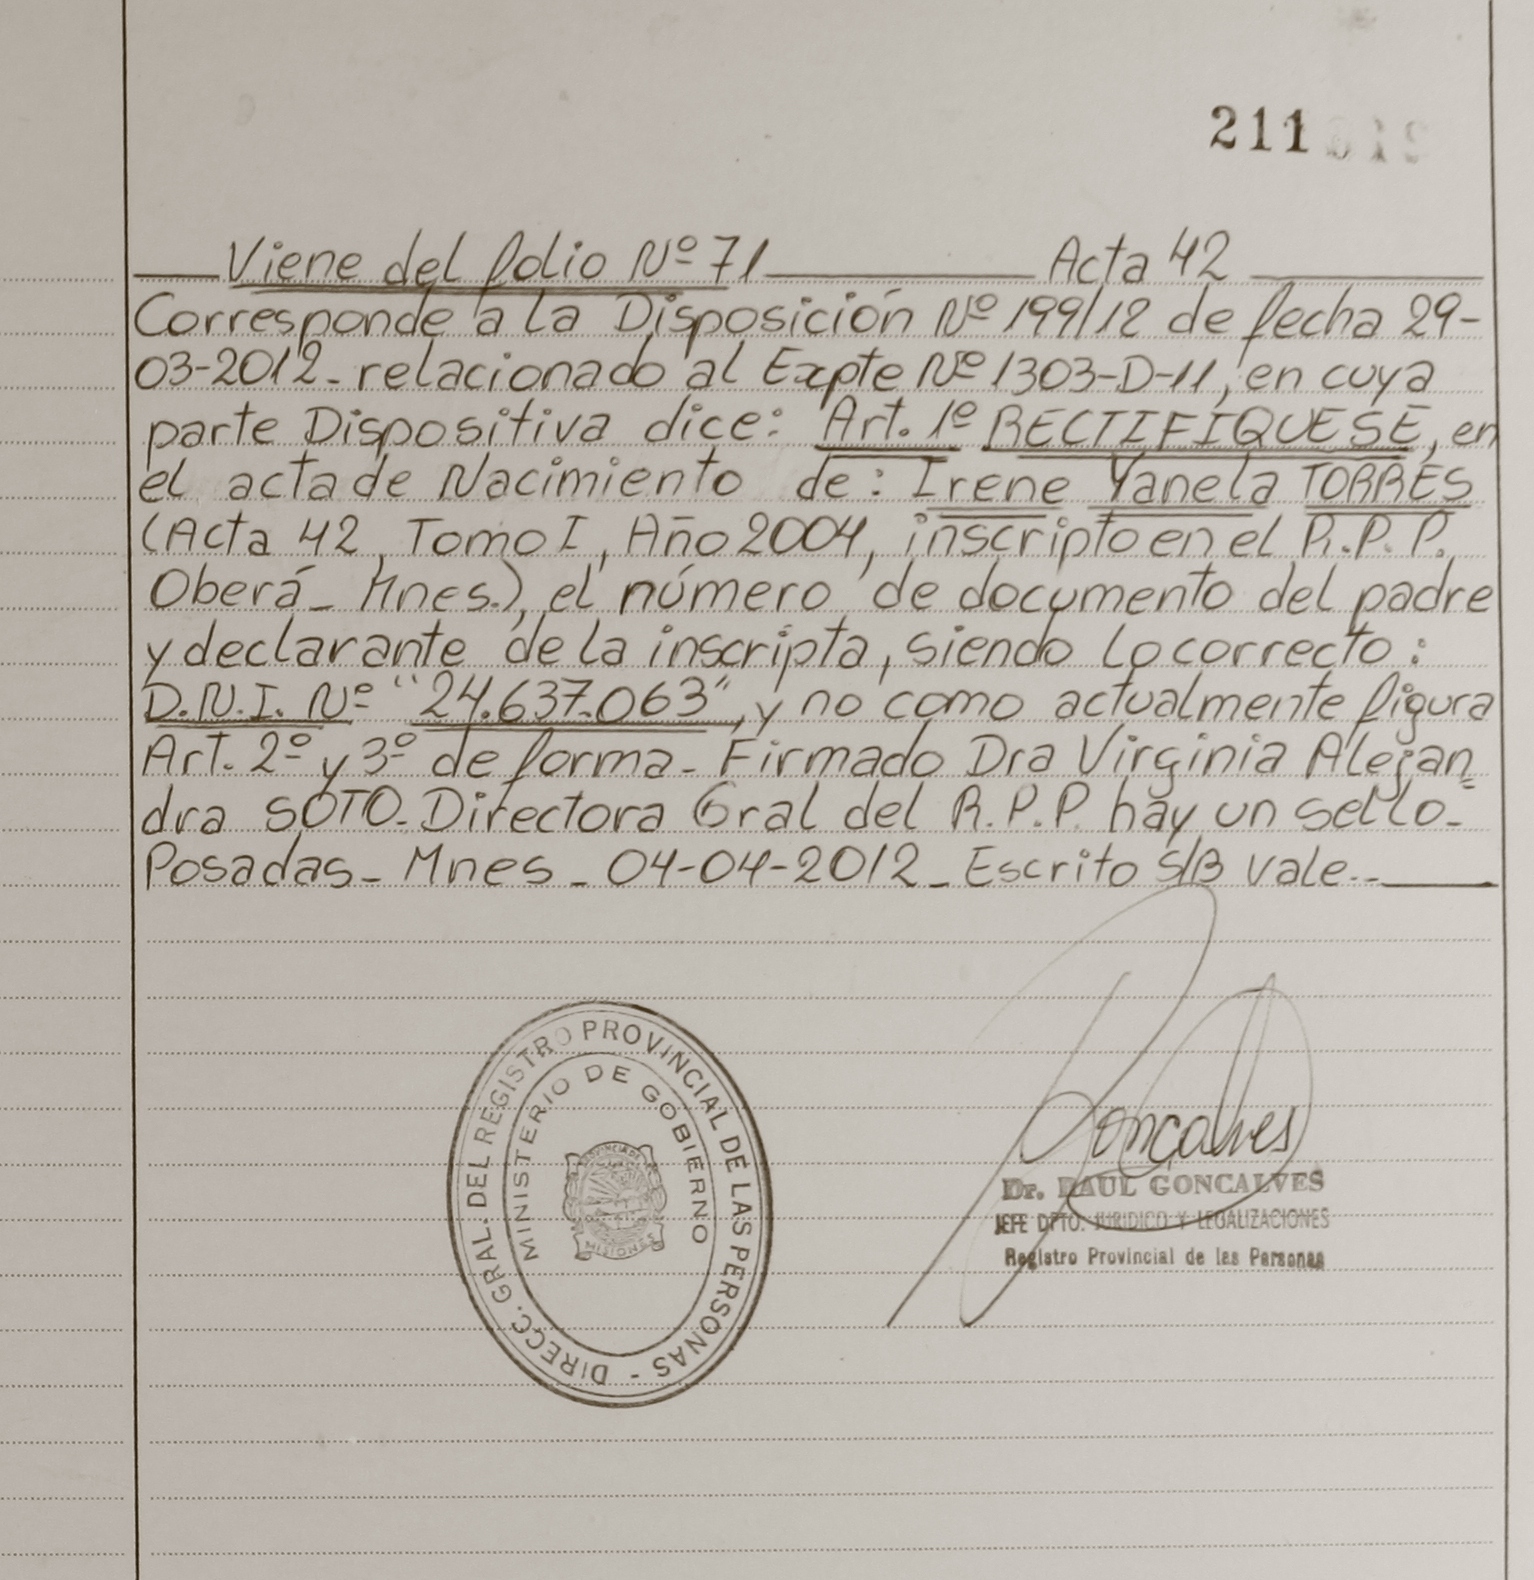 211
Viene del folio Nº 71 Acta 42
Corresponde a la Disposición Nº 199/12 de fecha 29-
03-2012_ relacionado al Expte Nº 1303-D-11, en cuya
parte Dispositiva dice: Art. 1º RECTIFIQUESE, en
el acta de Nacimiento de: Irene Yanela TORRES
(Acta 42, Tomo I, Año 2004, inscripto en el R.P.P.
Oberá_ Mnes.), el número de documento del padre
y declarante de la inscripta, siendo lo correcto:
D.N.I. Nº "24.637.063", y no como actualmente figura
Art. 2º y 3º de forma_ Firmado Dra Virginia Alejan=
dra SOTO_ Directora Gral del R.P.P. hay un sello_
Posadas_ Mnes_ 04-04-2012_ Escrito S/B vale._
DIRECC. GRAL. DEL REGISTRO PROVINCIAL DE LAS PERSONAS -
MINISTERIO DE GOBIERNO
PROVINCIA DE
MISIONES
Goncalves
Dr. RAUL GONCALVES
JEFE DPTO. JURIDICO Y LEGALIZACIONES
Registro Provincial de las Personas